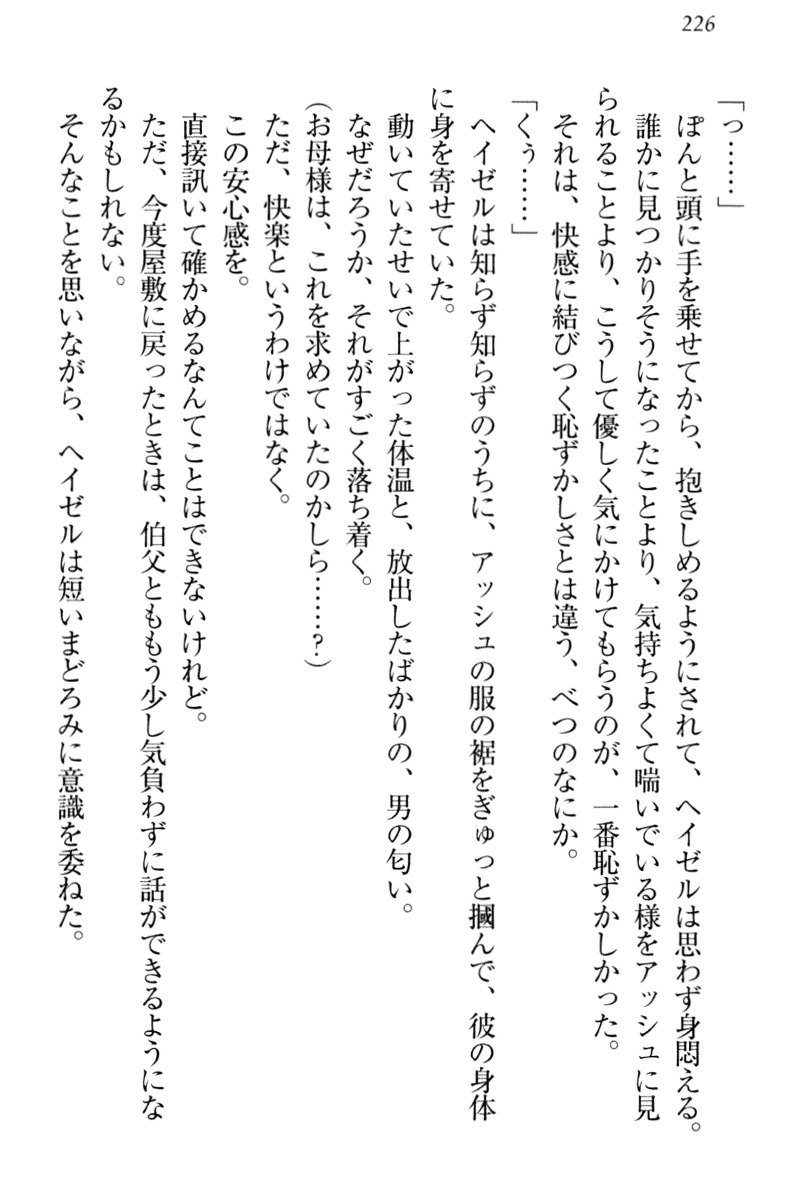 226
「っ……」
ぽんと頭に手を乗せてから、抱きしめるようにされて、ヘイゼルは思わず身悶える。
誰かに見つかりそうになったことより、気持ちよくて喘いでいる様をアッシュに見
られることより、こうして優しく気にかけてもらうのが、一番恥ずかしかった。
それは、快感に結びつく恥ずかしさとは違う、べつのなにか。
「くぅ……」
ヘイゼルは知らず知らずのうちに、アッシュの服の裾をぎゅっと摑んで、彼の身体
に身を寄せていた。
動いていたせいで上がった体温と、放出したばかりの、男の匂い。
なぜだろうか、それがすごく落ち着く。
(お母様は、これを求めていたのかしら……?)
ただ、快楽というわけではなく。
この安心感を。
直接訊いて確かめるなんてことはできないけれど。
ただ、今度屋敷に戻ったときは、伯父とももう少し気負わずに話ができるようにな
るかもしれない。
そんなことを思いながら、ヘイゼルは短いまどろみに意識を委ねた。